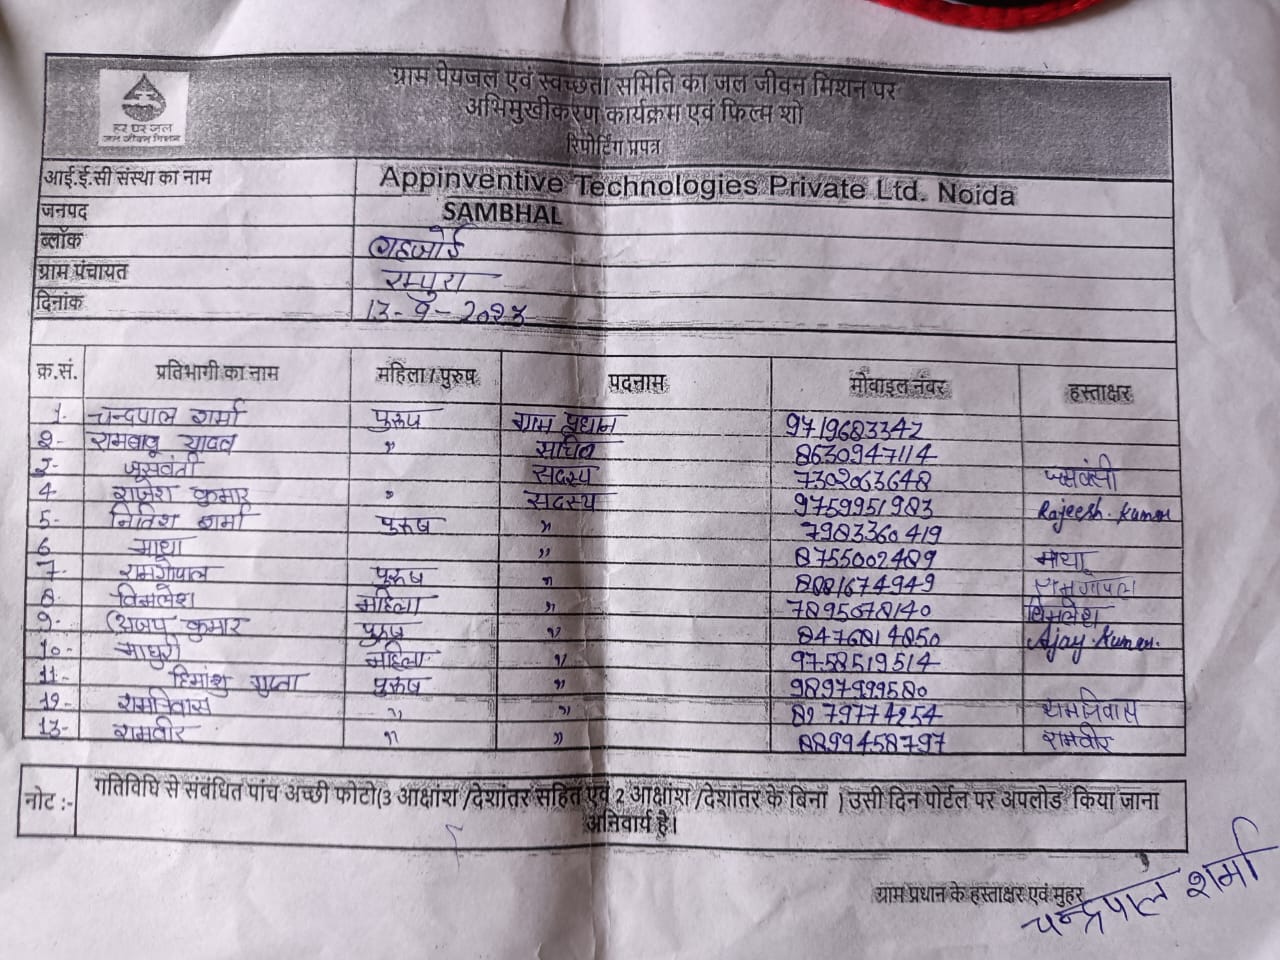 हर घर जल
जल जीवन मिशन
ग्राम पेयजल एवं स्वच्छता समिति का जल जीवन मिशन पर
अभिमुखीकरण कार्यक्रम एवं फिल्म शो
रिपोर्टिंग प्रपत्र
आई.ई.सी संस्था का नाम Appinventive Technologies Private Ltd. Noida
जनपद SAMBHAL
ब्लॉक
ग्राम पंचायत रम्पुरा
दिनांक 13-9-2023
क्र.सं. प्रतिभागी का नाम महिला / पुरुष पदनाम मोबाइल नंबर हस्ताक्षर
1- चन्द्रपाल शर्मा पुरूष ग्राम प्रधान 9719683342
2- रामबाबू यादव " सचिव 8630947114
3- जसवंती सदस्य 7302063648 जसवंती
4- राजेश कुमार " सदस्य 9759951983 Rajeesh Kumar
5- नितिश शर्मा पुरूष " 7983360419
6 माया " 8755002489 माया
7- रामगोपाल पुरूष " 8881674949 रामगोपाल
8- विमलेश महिला " 7895678140 विमलेश
9- अजय कुमार पुरूष " 8476814850 Ajay Kumar
10- माधुरी महिला " 9758519514
11- हिमांशु गुप्ता पुरूष " 9897999580
12- रामनिवास " " 8279774254 रामनिवास
13- रामवीर " " 8899458797 रामवीर
नोट :- गतिविधि से संबंधित पांच अच्छी फोटो(3 आक्षांश /देशांतर सहित एवं 2 आक्षांश /देशांतर के बिना ) उसी दिन पोर्टल पर अपलोड किया जाना
अनिवार्य है।
ग्राम प्रधान के हस्ताक्षर एवं मुहर
चन्द्रपाल शर्मा